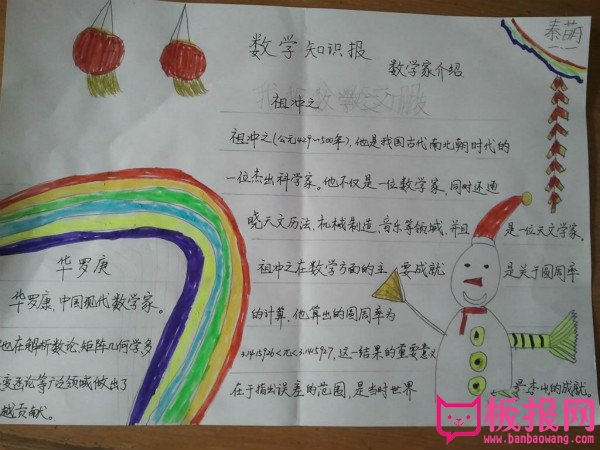 数学知识报
秦萌
数学家介绍
祖冲之
祖冲之(公元429~500年),他是我国古代南北朝时代的
一位杰出科学家。他不仅是一位数学家,同时还通
晓天文历法、机械制造、音乐等领域,并且是一位天文学家。
祖冲之在数学方面的主要成就是关于圆周率
的计算,他算出的圆周率为
3.1415926<π<3.1415927,这一结果的重要意义
在于指出误差的范围,是当时世界的成就。
华罗庚
华罗庚,中国现代数学家。
他在解析数论、矩阵几何学多
变函论等广泛领域做出了
越贡献。
板报网
www.banbaowang.com